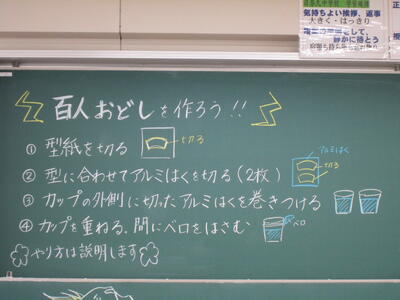 気持ちよい挨拶、返事
大きく・はっきり
静かに待とう
百人おどしを作ろう!!
① 型紙を切る
切る
② 型に合わせてアルミはくを切る(2枚)
アルミはく
切る
③ カップの外側に切ったアルミはくを巻きつける
④ カップを重ねる。間にベロをはさむ
ベロ
やり方は説明します